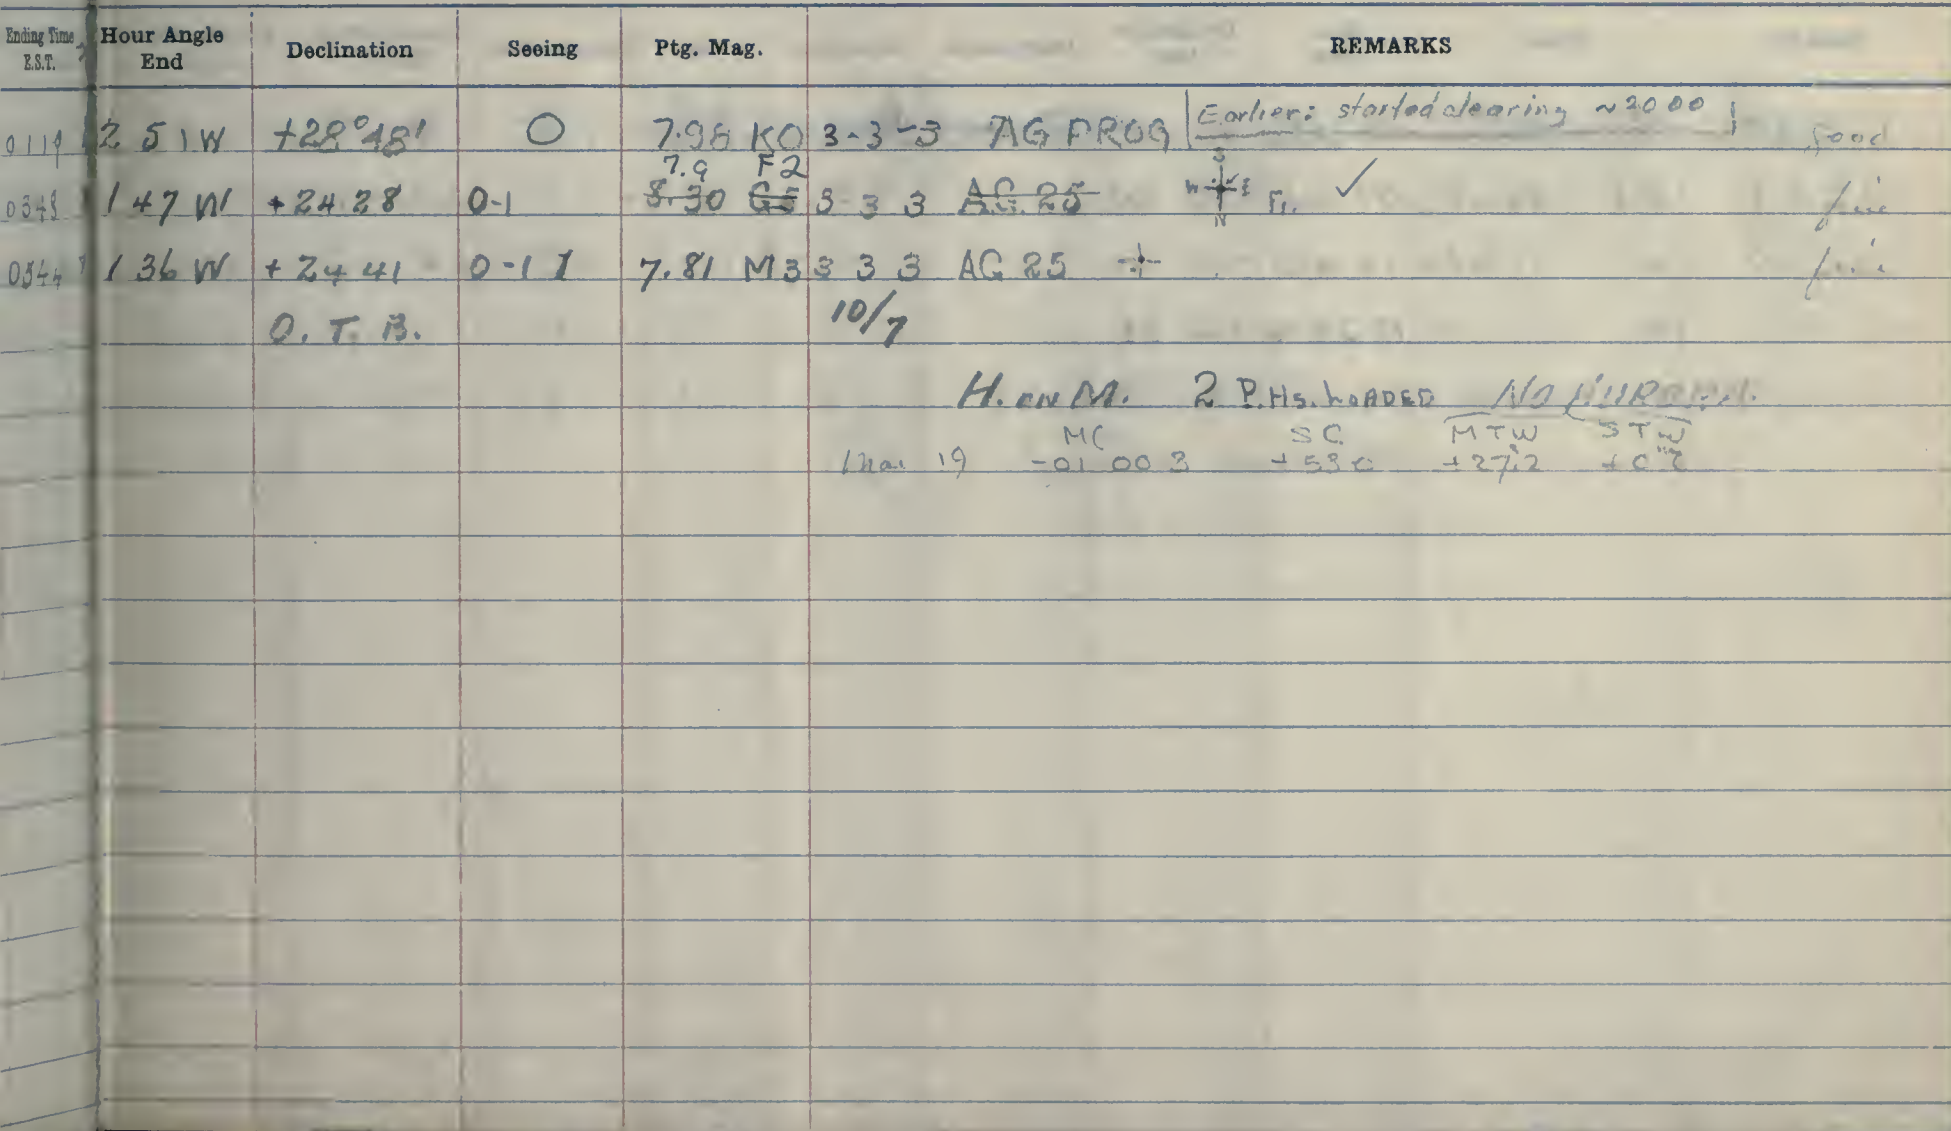 Ending Time E.S.T. Hour Angle End Declination Seeing Ptg. Mag. REMARKS
0119 2 51W +28°48' 0 7.98 K0 3-3-3 AG PROG Earlier: started clearing ~2000 good
7.9 F2
1 47 W +24 28 0-1 8.30 G5 3 3 3 A.G. 25 S W E N ✓ fine
0344 1 36 W +24 41 0-1 1 7.81 M3 3 3 3 AG 25 fine
O. T. B. 10/7
H. ON M. 2 P.Hs. LOADED NO
MC SC MTW STW
Mar 19 -01 00 3 +27.2